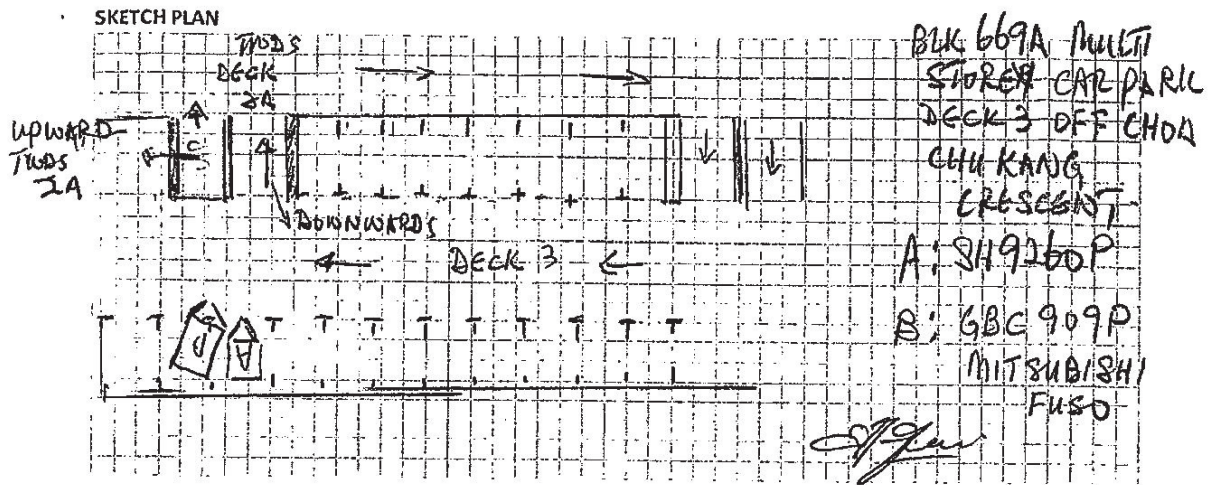 SKETCH PLAN
TWDS
DECK
2A
UPWARD
TWDS
2A
DOWNWARDS
DECK 3
B
A
BLK 669A MULTI
STOREY CAR PARK
DECK 3 OFF CHOA
CHU KANG
CRESCENT
A: SH9260P
B: GBC 909P
MITSUBISHI
FUSO